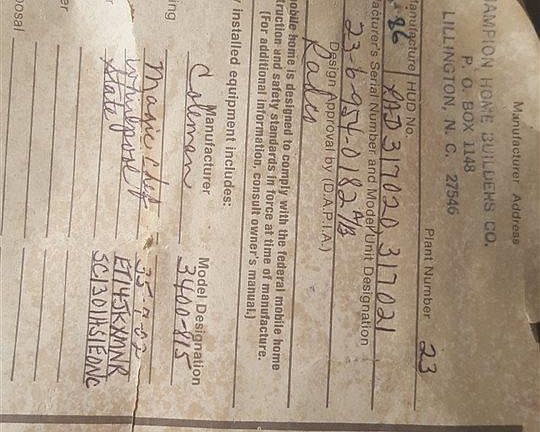 Manufacturer Address
HAMPION HOME BUILDERS CO.
P. O. BOX 1148
LILLINGTON, N. C. 27546
Plant Number 23
Manufacture HUD No.
86 317020 317021
acturer's Serial Number and Model Unit Designation
23-6-954-0182 A/B
Design Approval by (D.A.P.I.A.)
Radco
mobile home is designed to comply with the federal mobile home
truction and safety standards in force at time of manufacture.
(For additional information, consult owner's manual.)
y installed equipment includes:
Manufacturer Model Designation
ting Coleman 3400-815
Magic Chef
Whirlpool ET14JKXMNR
State SC1301HS1EONC
er
posal